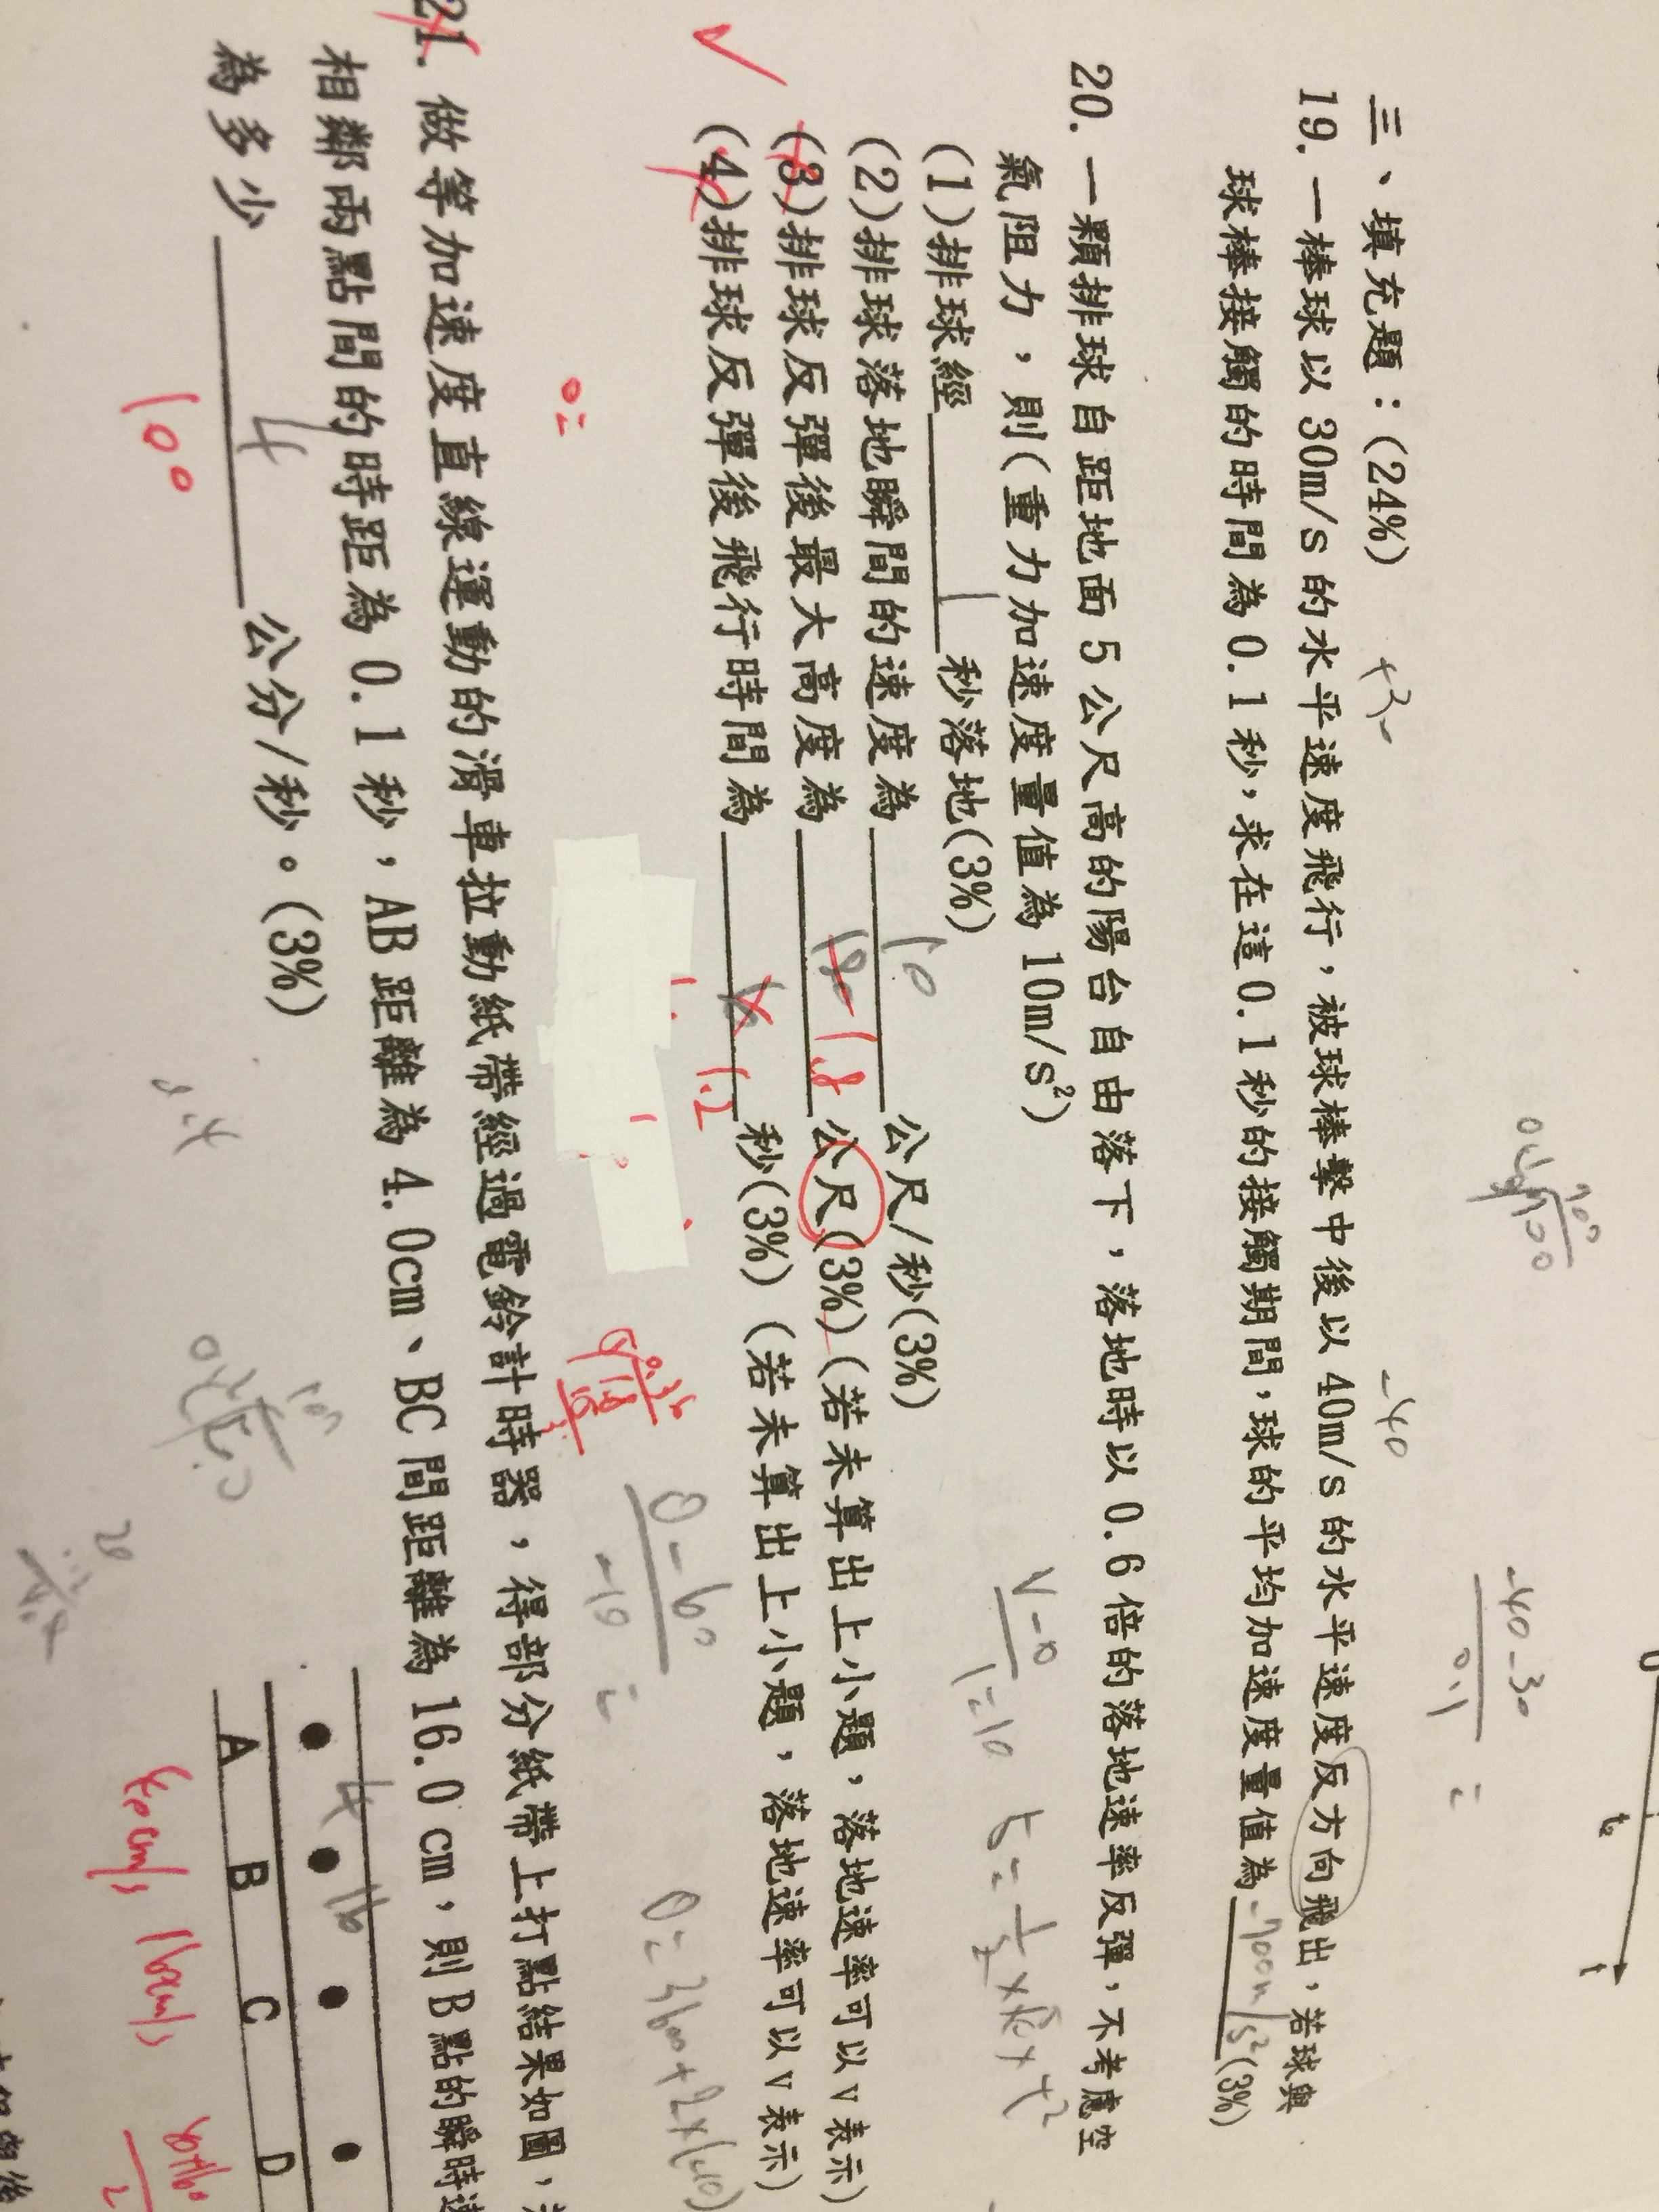 三、填充題：(24%)
+30
-40
-40-30
0.1
=
19. 一棒球以 30m/s 的水平速度飛行，被球棒擊中後以 40m/s 的水平速度反方向飛出，若球與
球棒接觸的時間為 0.1 秒，求在這 0.1 秒的接觸期間，球的平均加速度量值為 -700m/s² (3%)
20. 一顆排球自距地面 5 公尺高的陽台自由落下，落地時以 0.6 倍的落地速率反彈，不考慮空
氣阻力，則(重力加速度量值為 10m/s²)
(1)排球經 1 秒落地(3%)
V-0
1=10
5=1/2×10×t²
(2)排球落地瞬間的速度為 10 公尺/秒(3%)
(3)排球反彈後最大高度為 180 1.8 公尺(3%)(若未算出上小題，落地速率可以 v 表示)
(4)排球反彈後飛行時間為 1.2 秒(3%)(若未算出上小題，落地速率可以 v 表示)
0-60
-10
=
0=3600+2×(-10)
0=
21. 做等加速度直線運動的滑車拉動紙帶經過電鈴計時器，得部分紙帶上打點結果如圖，
相鄰兩點間的時距為 0.1 秒，AB 距離為 4.0cm、BC 間距離為 16.0 cm，則 B 點的瞬時速
為多少 4 公分/秒。(3%)
100
4
16
A B C D
40cm/s
160cm/s
40+160
2